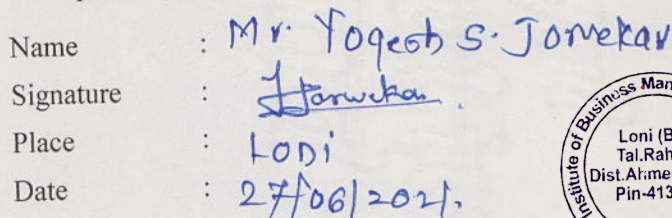 Name : Mr. Yogesh S. Jorvekar
Signature : Jorvekar.
Place : LONI
Date : 27/06/2021.
Institute of Business Man
Loni (B
Tal.Rah
Dist.Ahme
Pin-413